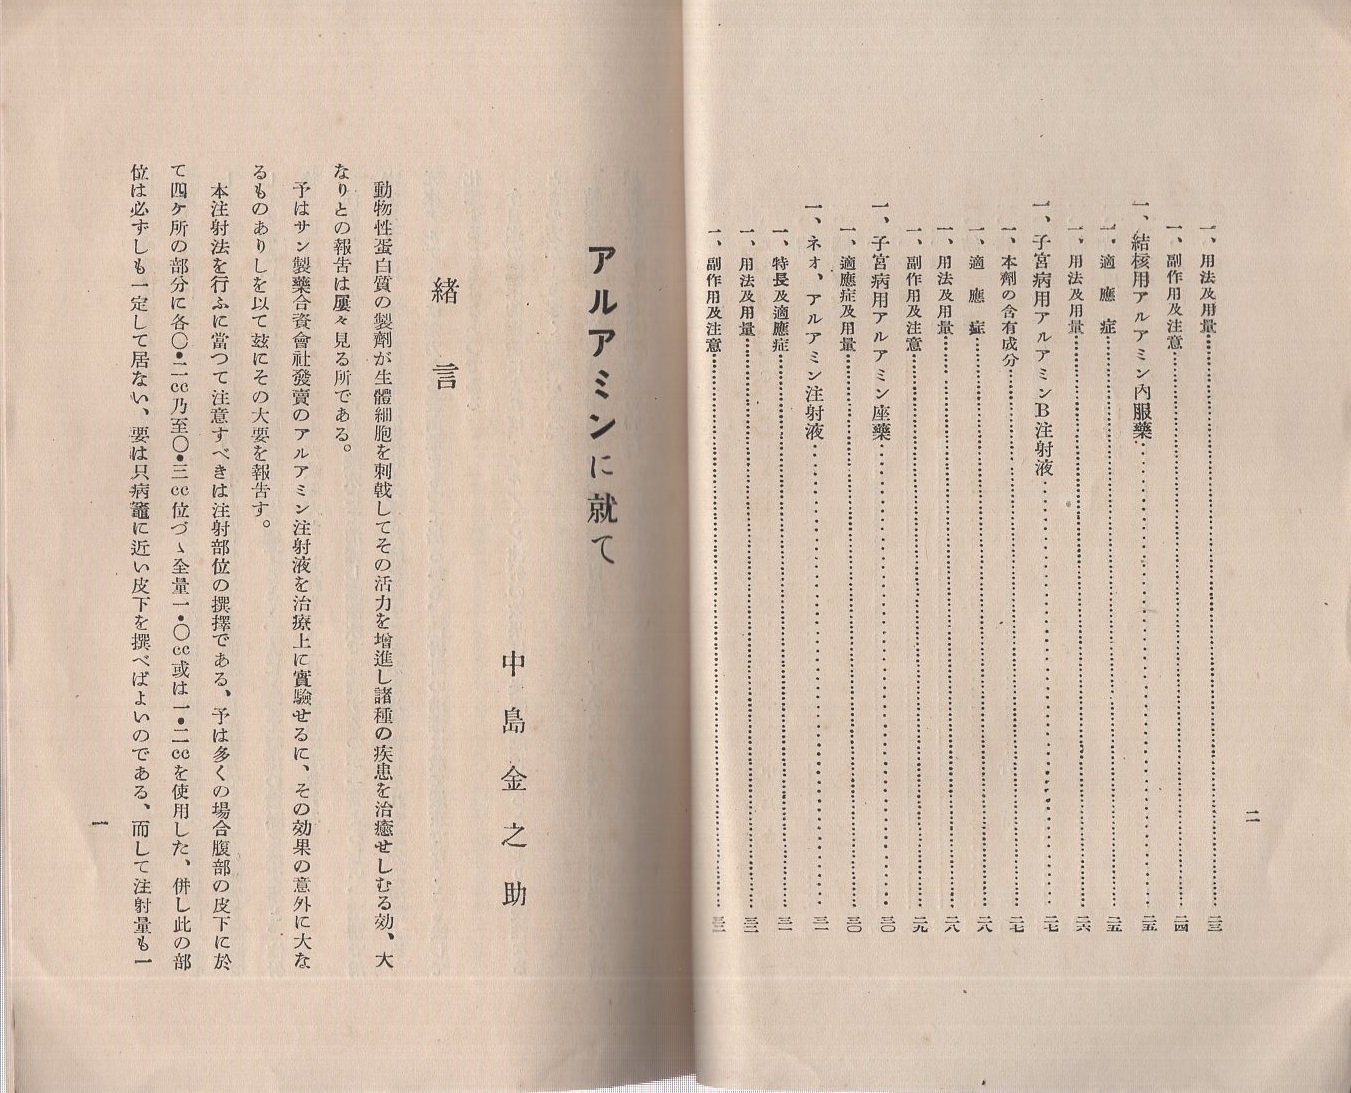 二
一、用法及用量……二三
一、副作用及注意……二四
一、結核用アルアミン內服藥……二五
一、適應症……二五
一、用法及用量……二六
一、子宮病用アルアミンB注射液……二七
一、本劑の含有成分……二七
一、適應症……二八
一、用法及用量……二八
一、副作用及注意……二九
一、子宮病用アルアミン座藥……三〇
一、適應症及用量……三〇
一、ネオ、アルアミン注射液……三一
一、特長及適應症……三一
一、用法及用量……三二
一、副作用及注意……三三
アルアミンに就て
中島金之助
緒言
動物性蛋白質の製劑が生體細胞を刺戟してその活力を增進し諸種の疾患を治癒せしむる効、大
なりとの報告は屢々見る所である。
予はサン製藥合資會社發賣のアルアミン注射液を治療上に實驗せるに、その効果の意外に大な
るものありしを以て玆にその大要を報告す。
本注射法を行ふに當つて注意すべきは注射部位の撰擇である、予は多くの場合腹部の皮下に於
て四ケ所の部分に各〇・二cc乃至〇・三cc位づゝ全量一・〇cc或は一・二ccを使用した、併し此の部
位は必ずしも一定して居ない、要は只病竈に近い皮下を撰べばよいのである、而して注射量も一
一